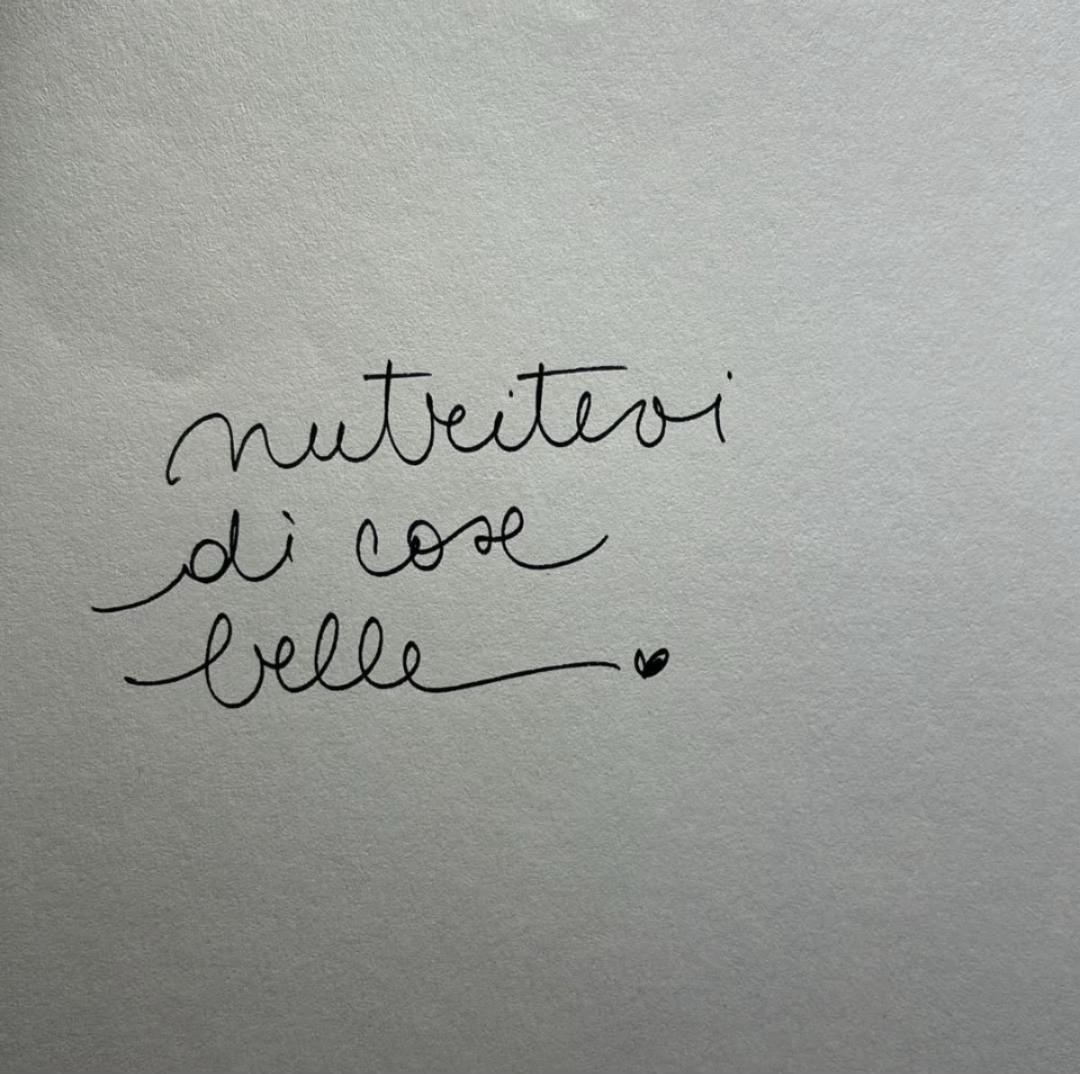 nutritevi
di cose
belle